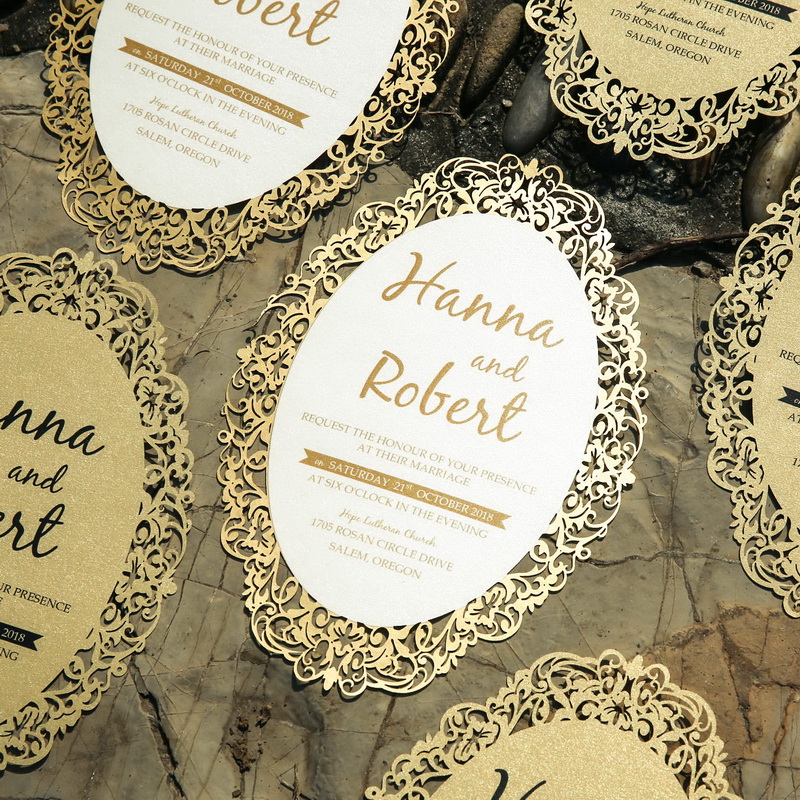 Robert
REQUEST THE HONOUR OF YOUR PRESENCE
AT THEIR MARRIAGE
on SATURDAY 21st OCTOBER 2018
AT SIX O'CLOCK IN THE EVENING
Hope Lutheran Church
1705 ROSAN CIRCLE DRIVE
SALEM, OREGON
IN THE EVENING
Hope Lutheran Church
1705 ROSAN CIRCLE DRIVE
SALEM, OREGON
Hanna
and
Robert
REQUEST THE HONOUR OF YOUR PRESENCE
AT THEIR MARRIAGE
on SATURDAY 21st OCTOBER 2018
AT SIX O'CLOCK IN THE EVENING
Hope Lutheran Church
1705 ROSAN CIRCLE DRIVE
SALEM, OREGON
nna
and
ert
UR PRESENCE
2018
NG
REQ
on